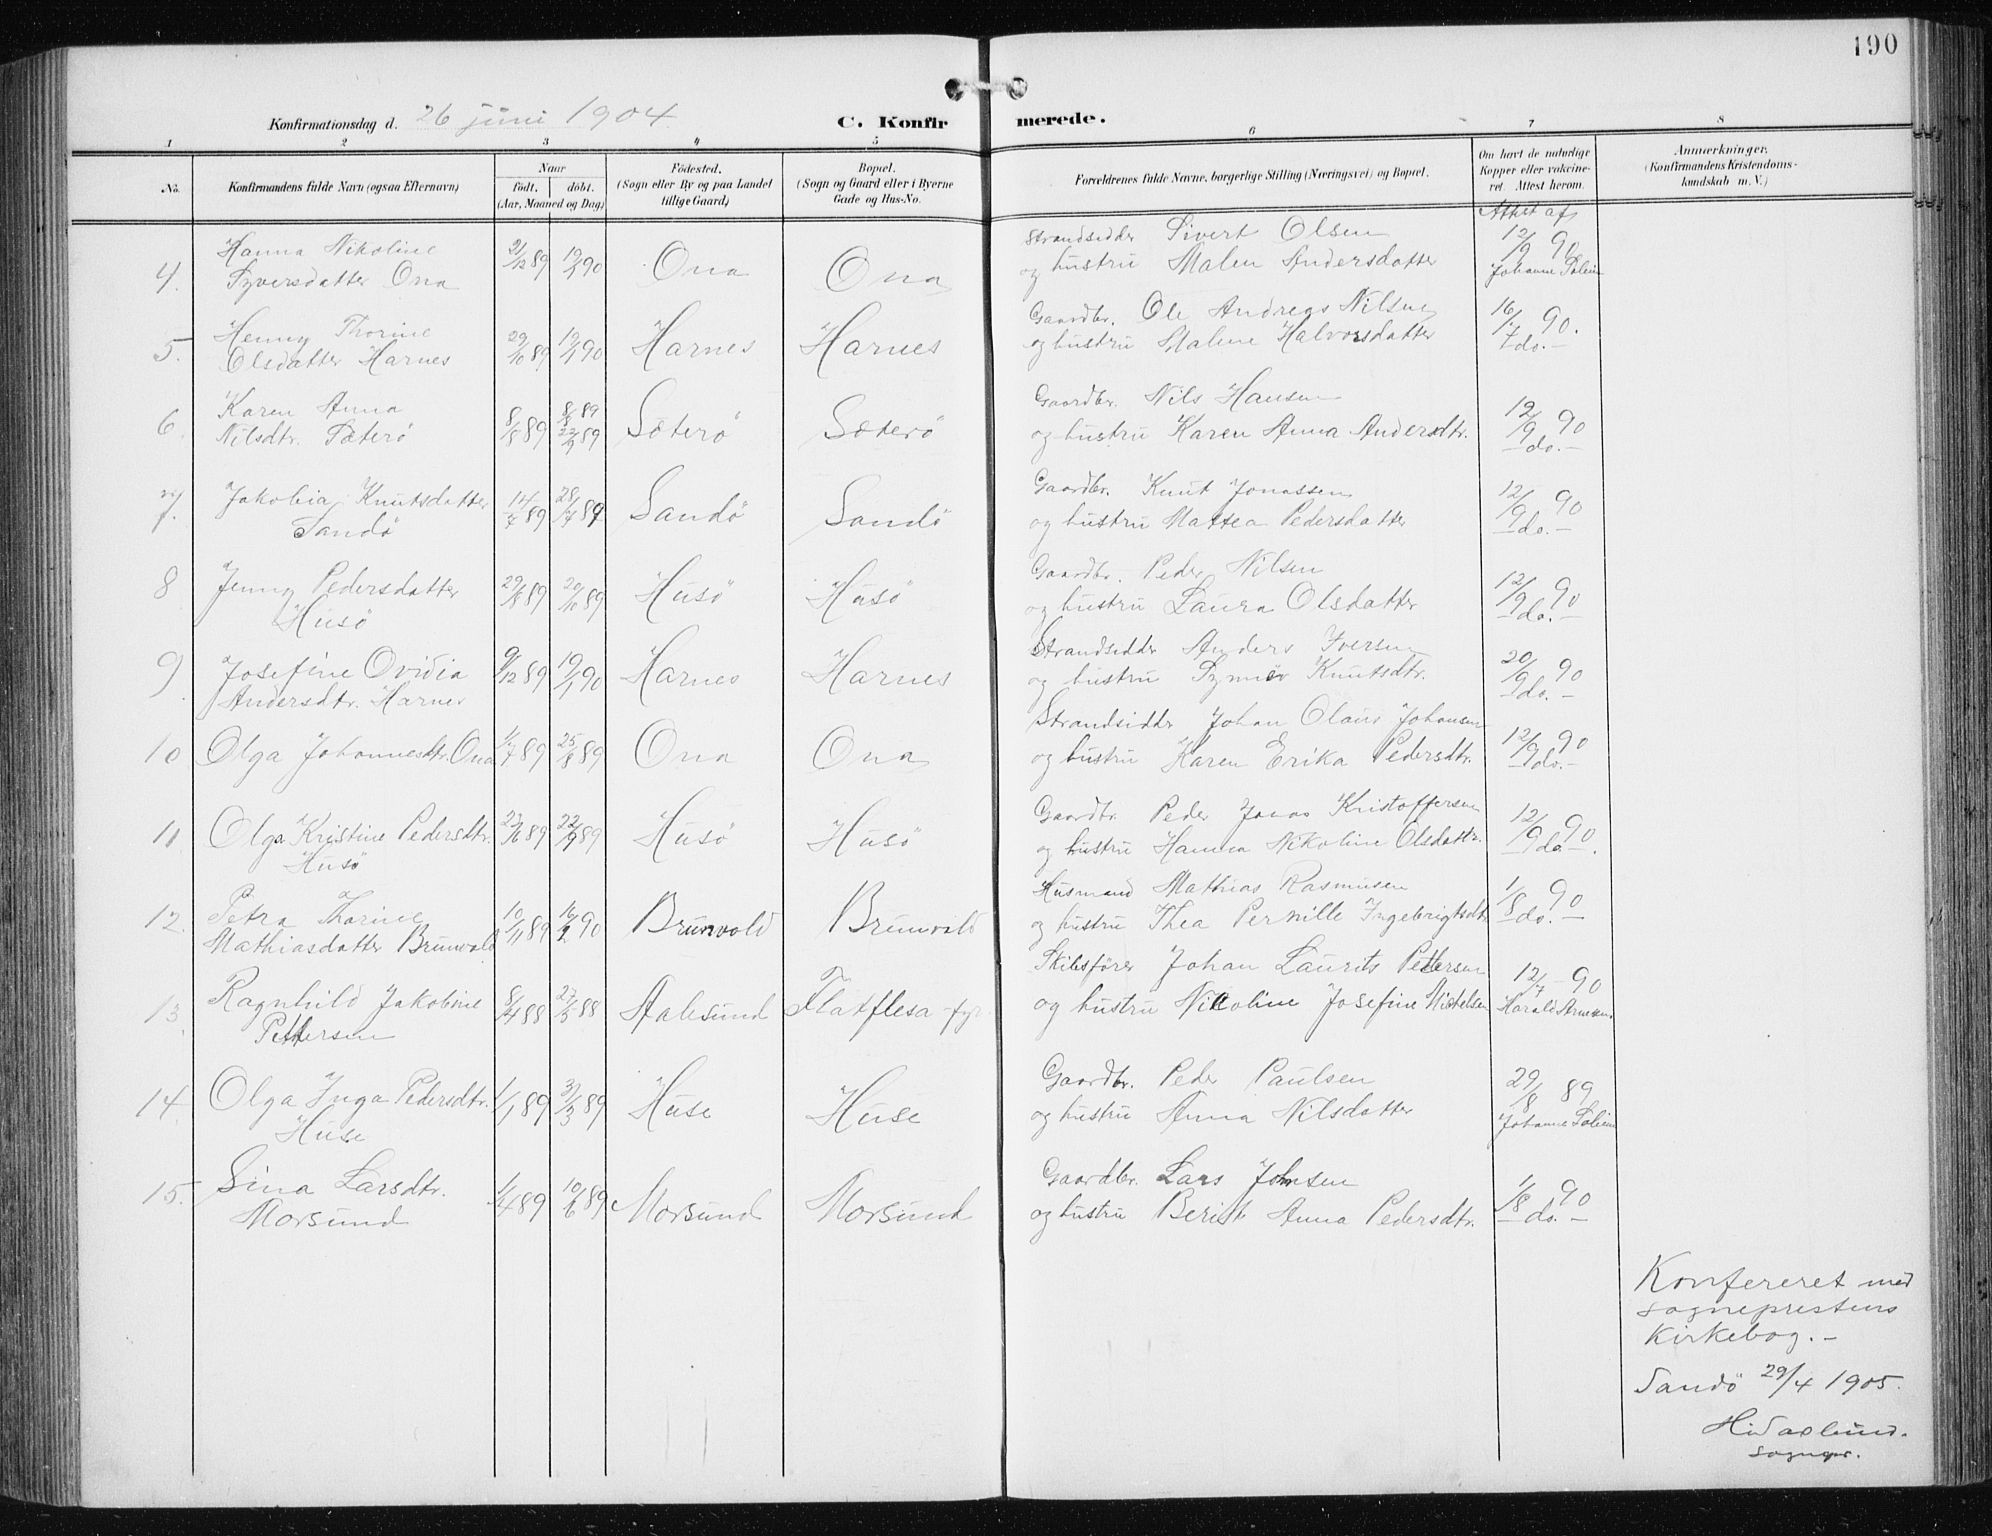 190
Konfirmationsdag d. 26 juni 1904. C. Konfirmerede.
1 2 3 4 5 6 7 8
No. Konfirmandens fulde Navn (ogsaa Efternavn) Naar født. døbt. (Aar, Maaned og Dag) Fødested. (Sogn eller By og paa Landet tillige Gaard) Bopæl. (Sogn og Gaard eller i Byerne Gade og Hus-No. Forældrenes fulde Navne, borgerlige Stilling (Næringsvei) og Bopæl. Om havt de naturlige Kopper eller vakcineret. Attest herom. Anmærkninger. (Konfirmandens Kristendomskundskab m. V.)
Attest af
4. Hanna Nikoline Syversdatter Ona 21/12 89 19/1 90 Ona Ona Strandsidder Sivert Olsen og hustru Malen Andersdatter 12/9 90 Johanne Solein
5. Henny Thorine Olsdatter Harnes 29/10 89 19/1 90 Harnes Harnes Gaardbr. Ole Andreas Nilsen og hustru Malene Halvorsdatter 16/7 90. do.
6. Karen Anna Nilsdtr. Sæterö 8/8 89 8/8 89 22/9 89 Sæterö Sæterö Gaardbr. Nils Hansen og hustru Karen Anna Andersdtr. 12/9 90 do.
7. Jakobia Knutsdatter Sandö 14/7 89 28/7 89 Sandö Sandö Gaardbr. Knut Jonassen og hustru Mattea Pedersdatter 12/9 90 do.
8 Jenny Pedersdatter Husö 29/8 89 20/10 89 Husö Husö Gaardbr. Peder Nilsen og hustru Laura Olsdatter 12/9 90 do.
9. Josefine Ovidia Andersdtr. Harnes 9/12 89 19/1 90 Harnes Harnes Strandsidder Anders Iversen og hustru Synnöv Knutsdtr. 20/9 90 do.
10 Olga Johannesdtr. Ona 1/7 89 25/8 89 Ona Ona Strandsidder Johan Olaus Johansen og hustru Karen Erika Pedersdtr. 12/9 90 do.
11 Olga Kristine Pedersdtr. Husö 22/6 89 22/9 89 Husö Husö Gaardbr. Peder Jonas Kristoffersen og hustru Hanna Nikoline Olsdattr. 12/9 90 do.
12. Petra Thorine Mathiasdatter Brunvold 10/11 89 16/2 90 Brunvold Brunvold Husmand Mathias Rasmusen og hustru Thea Pernille Ingebrigtsdtr 1/8 90 do.
13. Ragnhild Jakobine Pettersen 8/4 88 27/5 88 Aalesund Flatflesa fyr. Skibsförer Johan Laurits Pettersen og hustru Nikoline Josefine Mikkelsen 12/7 90 Harald Arnesen
14. Olga Inga Pedersdtr. Huse 1/1 89 31/3 89 Huse Huse Gaardbr. Peder Paulsen og hustru Anna Nilsdatter 29/8 89 Johanne Solein
15. Sina Larsdtr. Morsund 1/4 89 10/6 89 Morsund Morsund Gaardbr. Lars Johnsen og hustru Berit Anna Pedersdtr. 1/8 90 do.
Konfereret med
sogneprestens
Kirkebog.
Sandö 29/4 1905.
sognepr.